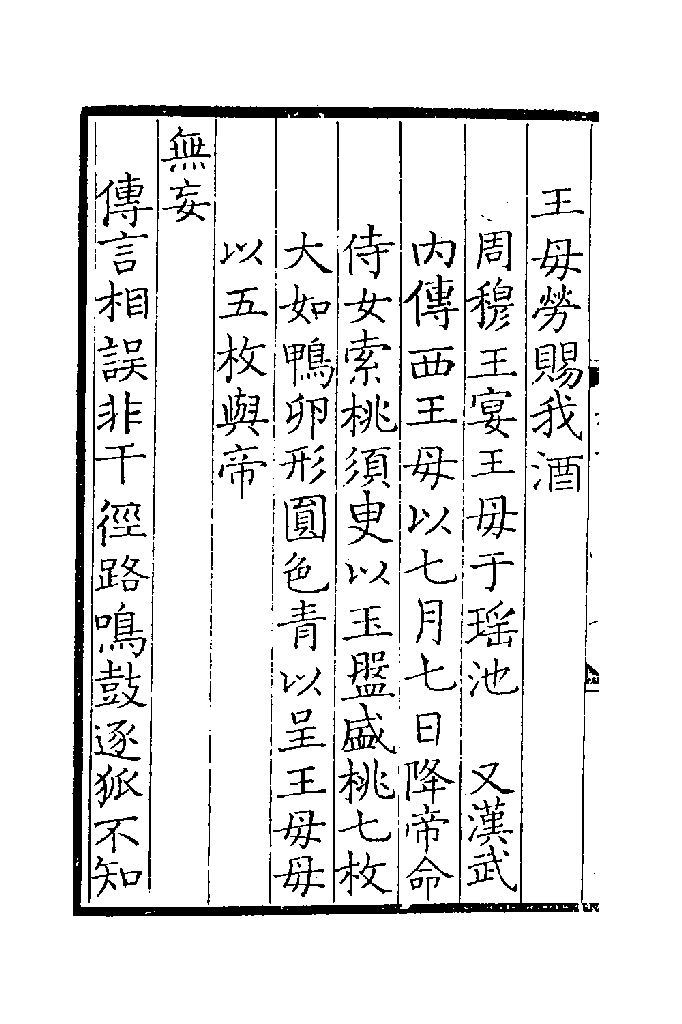 王母勞賜我酒
周穆王宴王母于瑶池　又漢武
内傳西王母以七月七日降帝命
侍女索桃須臾以玉盤盛桃七枚
大如鴨卵形圓色青以呈王母母
以五枚與帝
無妄
傳言相誤非干徑路鳴鼓逐狐不知